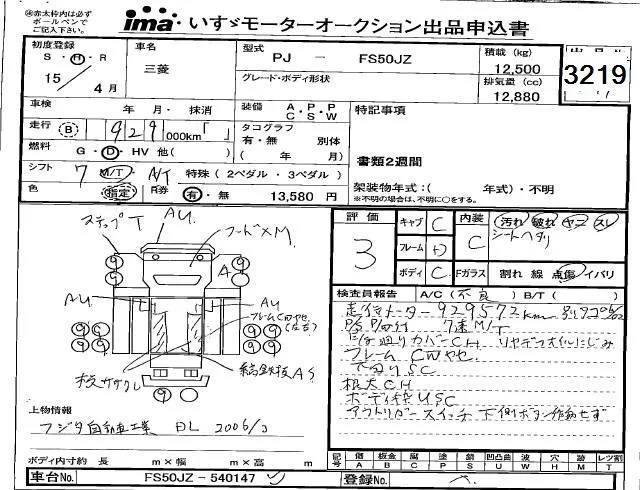 ㊟赤太枠内は必ず
ボールペンで
ご記入下さい。
ima いすゞモーターオークション出品申込書
初度登録 車名 型式 積載 (kg) 出品No.
S・H・R 三菱 PJ － FS50JZ 12,500 3219
15 / 4月 グレード・ボディ形状 排気量 (cc)
12,880
車検 年・月・抹消 装備 A・P・P
C S W 特記事項
走行 B 929 000km「 」 タコグラフ
有・無 別体
燃料 G・D・HV 他( ) ( 年 月) 書類2週間
シフト 7 M/T A/T 特殊 (2ペダル・3ペダル)
色 指定 R券 有・無 13,580 円 架装物年式:( 年式)・不明
※不明の場合は、不明に○をする。
ステップT AU フードXM
A
AU AU
フレームCWヤセ
(左右)
板ササクレ 縞鈑板AS
評価 3
キャブ C 内装 C 汚れ 破れ ヤニ スレ
シートヘタリ
フレーム D
ボディ C Fガラス 割れ 線 点傷 イバリ
検査員報告 A/C (不良) B/T ( )
走行メーター929572km
P/S P/W付 7速M/T
フレームCWヤセ
下廻りSC
根太CH
ボディ枠USC
アウトリガースイッチ下側ボタン作動せず
上物情報
フジタ自動車工業 DL 2006/3
ボディ内寸約 長 m×幅 m×高 m
記号No. 価 A 板金 B 腐 C 塗 P 錆 S 凹凸曲 U W 穴 H 跡 M レツ割 T
車台No. FS50JZ－540147
登録No.